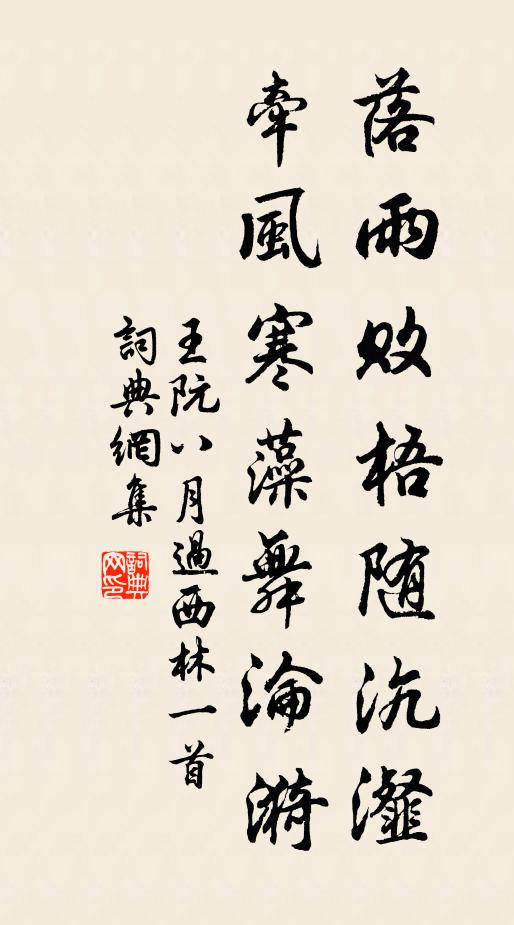 落雨敗梧随沆瀣
牽風寒藻舞淪漪
王阮八月過西林一首
詞典網集
詞典網印